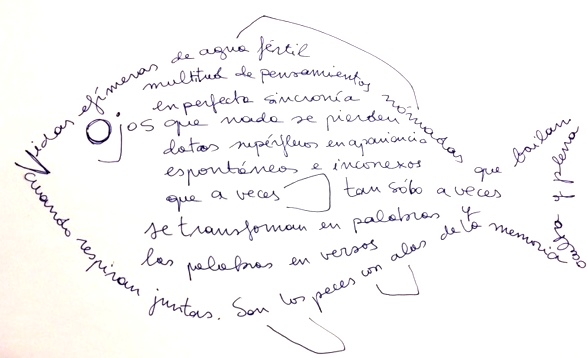 Vidas efímeras de agua fértil
multitud de pensamientos nómadas que bailan
en perfecta sincronía
Ojos que nada se pierden
datos supérfluos en apariencia
espontáneos e inconexos
que a veces tan sólo a veces
se transforman en palabras y
las palabras en versos
cuando respiran juntas. Son los peces con alas de la memoria